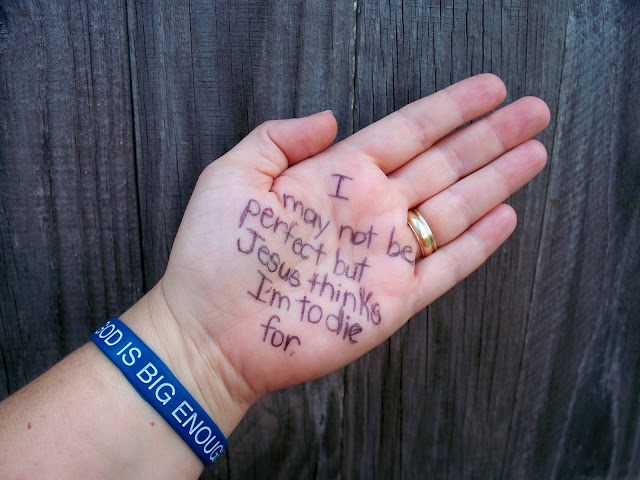 I
may not be
perfect but
Jesus thinks
I'm to die
for.
GOD IS BIG ENOUG